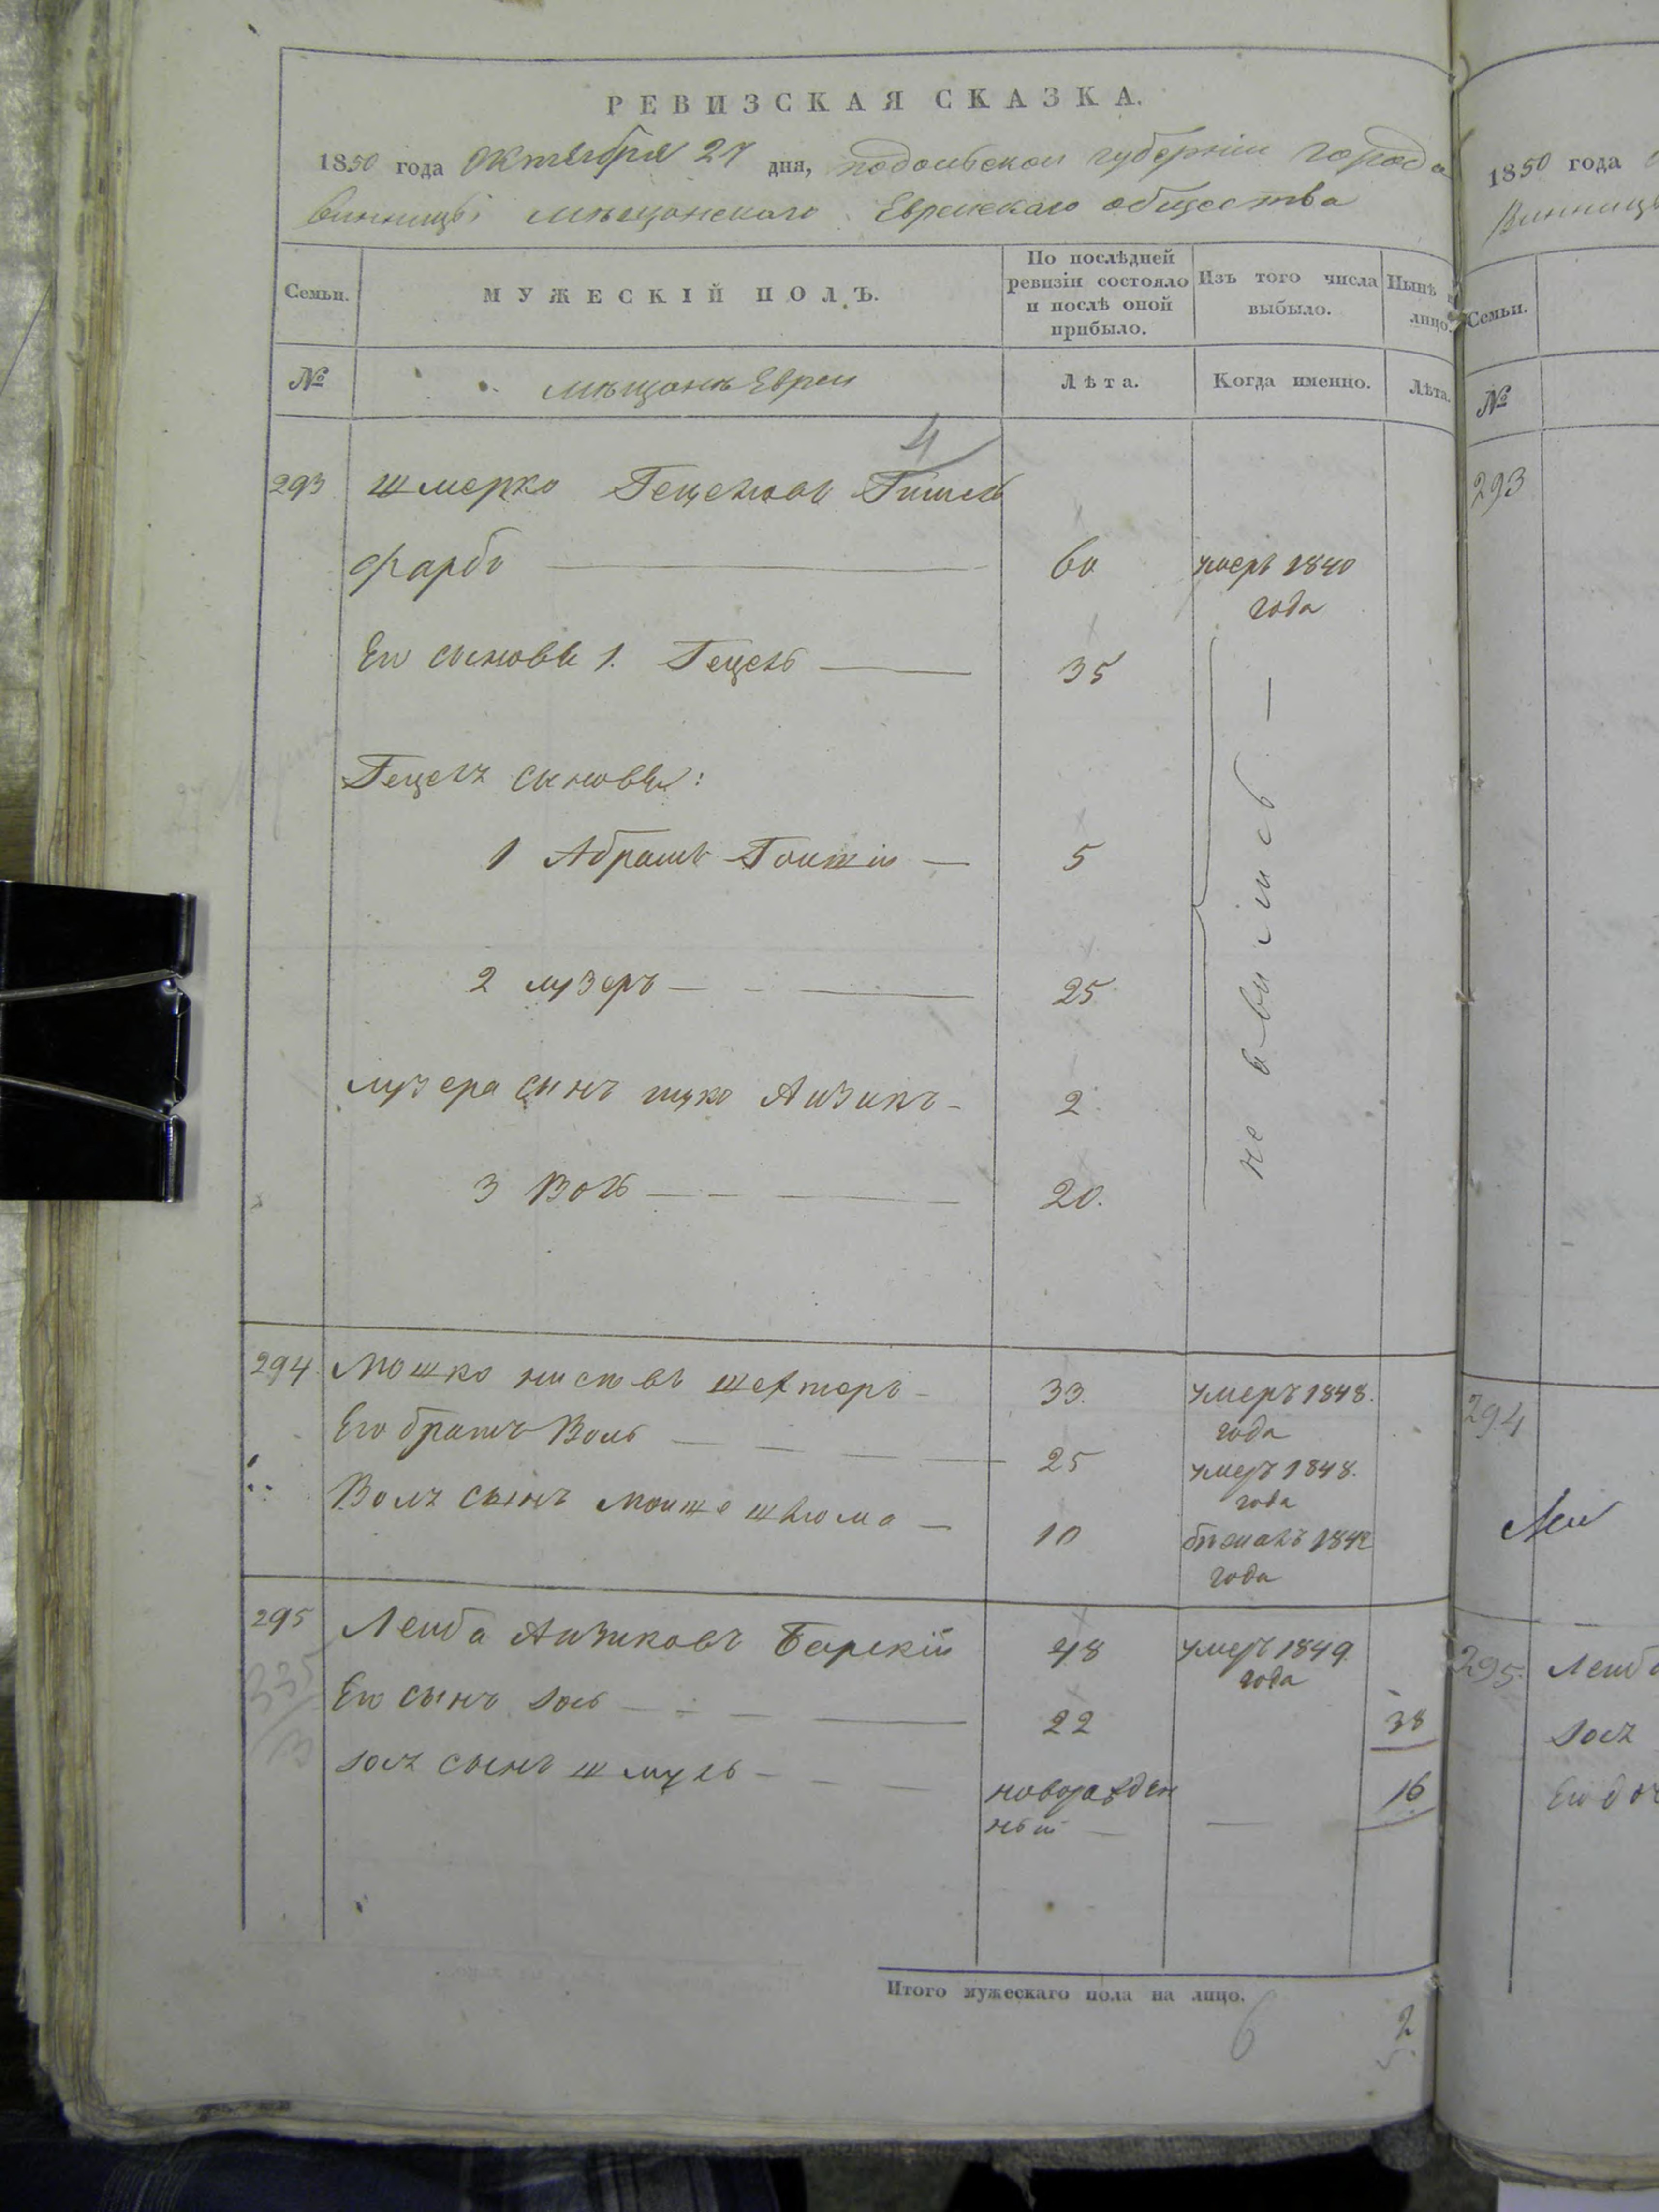 РЕВИЗСКАЯ СКАЗКА.
1850 года Октября 27 дня, подольской губерніи города
Винницы мѣщанскаго Еврейскаго общества
Семьи. МУЖЕСКІЙ ПОЛЪ. По послѣдней ревизіи состояло и послѣ оной прибыло. Изъ того числа выбыло. Нынѣ лицо.
№ мѣщанъ Евреи Лѣта. Когда именно. Лѣта.
4
293 Шмерко Гецелювъ
фарбъ 60 умеръ 1840
года
Его сыновья 1. Гецель 35
не явились
Гецеля сыновья:
1 Абрамъ 5
2 лузеръ 25
лузера сынъ ицко Аизикъ 2
3 Воль 20.
294 Мошко шехтеръ 33. умеръ 1848.
года
Его братъ Воль 25 умеръ 1848.
года
Воля сынъ шлюма 10 бѣжалъ 1842
года
295 Леиба Аизиковъ Барскій 48 умеръ 1849
года
335
Его сынъ 22 38
сынъ шмуль новорожден 16
ный
Итого мужескаго пола на лицо.
6 2
1850 года
Винницы
Семьи.
№
293
294
295. Леиба
Его доч